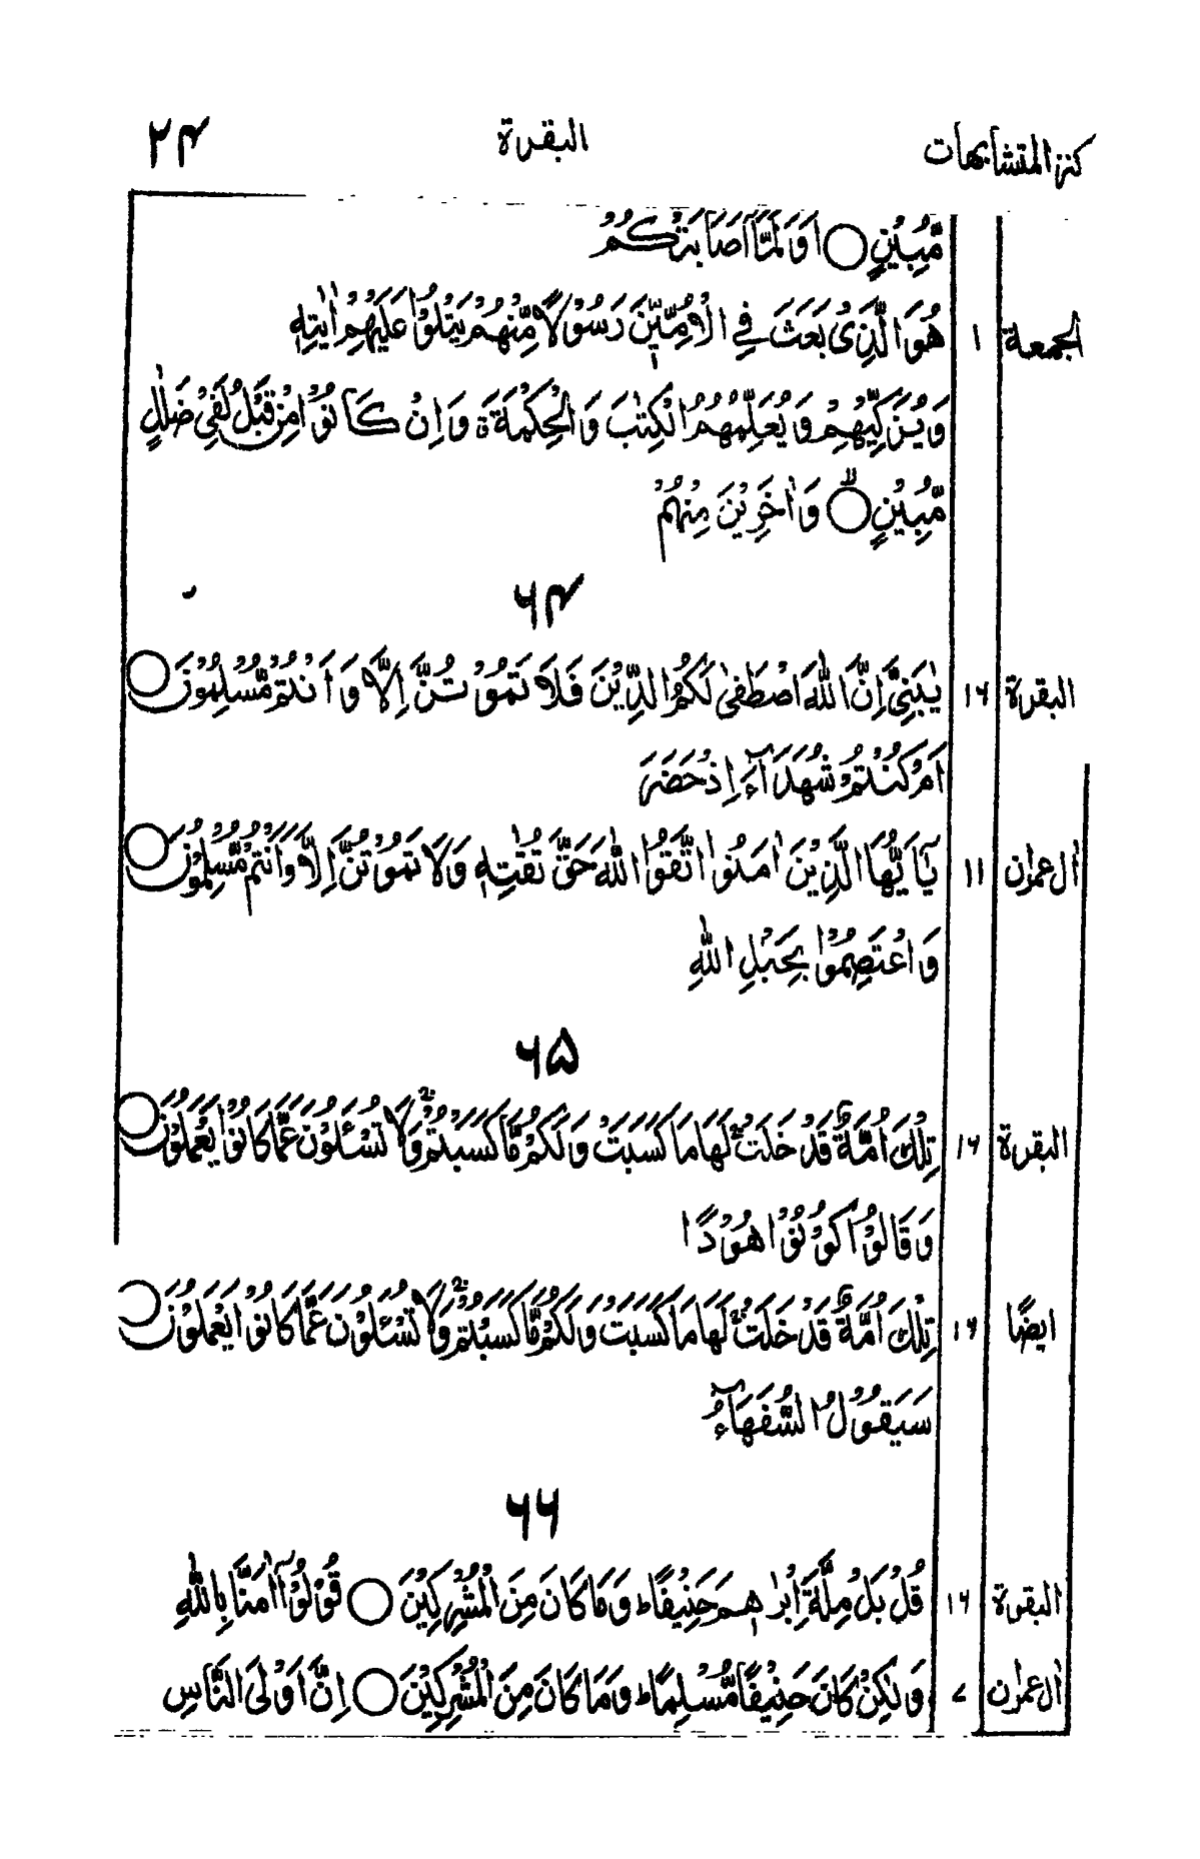 كنز المتشابهات البقرة ۲۴
مُّبِيْنٍ ○ اَوَلَمَّآ اَصَابَتْكُمْ
الجمعة ۱ هُوَ الَّذِىْ بَعَثَ فِى الْاُمِّيّٖنَ رَسُوْلًا مِّنْهُمْ يَتْلُوْا عَلَيْهِمْ اٰيٰتِهٖ
وَيُزَكِّيْهِمْ وَيُعَلِّمُهُمُ الْكِتٰبَ وَالْحِكْمَةَ ۃ وَاِنْ كَانُوْا مِنْ قَبْلُ لَفِىْ ضَلٰلٍ
مُّبِيْنٍ ○ لا وَاٰخَرِيْنَ مِنْهُمْ
۶۴
البقرة ۱۶ يٰبَنِىَّ اِنَّ اللّٰهَ اصْطَفٰى لَكُمُ الدِّيْنَ فَلَا تَمُوْتُنَّ اِلَّا وَاَنْتُمْ مُّسْلِمُوْنَ ○
اَمْ كُنْتُمْ شُهَدَآءَ اِذْ حَضَرَ
اٰل عمرٰن ۱۱ يٰٓاَيُّهَا الَّذِيْنَ اٰمَنُوا اتَّقُوا اللّٰهَ حَقَّ تُقٰتِهٖ وَلَا تَمُوْتُنَّ اِلَّا وَاَنْتُمْ مُّسْلِمُوْنَ ○
وَاعْتَصِمُوْا بِحَبْلِ اللّٰهِ
۶۵
البقرة ۱۶ تِلْكَ اُمَّةٌ قَدْ خَلَتْ ۚ لَهَا مَا كَسَبَتْ وَلَكُمْ مَّا كَسَبْتُمْ ۚ وَلَا تُسْـَٔلُوْنَ عَمَّا كَانُوْا يَعْمَلُوْنَ ○
وَقَالُوْا كُوْنُوْا هُوْدًا
ايضًا ۱۶ تِلْكَ اُمَّةٌ قَدْ خَلَتْ ۚ لَهَا مَا كَسَبَتْ وَلَكُمْ مَّا كَسَبْتُمْ ۚ وَلَا تُسْـَٔلُوْنَ عَمَّا كَانُوْا يَعْمَلُوْنَ ○
سَيَقُوْلُ السُّفَهَآءُ
۶۶
البقرة ۱۶ قُلْ بَلْ مِلَّةَ اِبْرٰهٖمَ حَنِيْفًا ؕ وَمَا كَانَ مِنَ الْمُشْرِكِيْنَ ○ قُوْلُوْٓا اٰمَنَّا بِاللّٰهِ
اٰل عمرٰن ۷ وَلٰكِنْ كَانَ حَنِيْفًا مُّسْلِمًا ؕ وَمَا كَانَ مِنَ الْمُشْرِكِيْنَ ○ اِنَّ اَوْلَى النَّاسِ